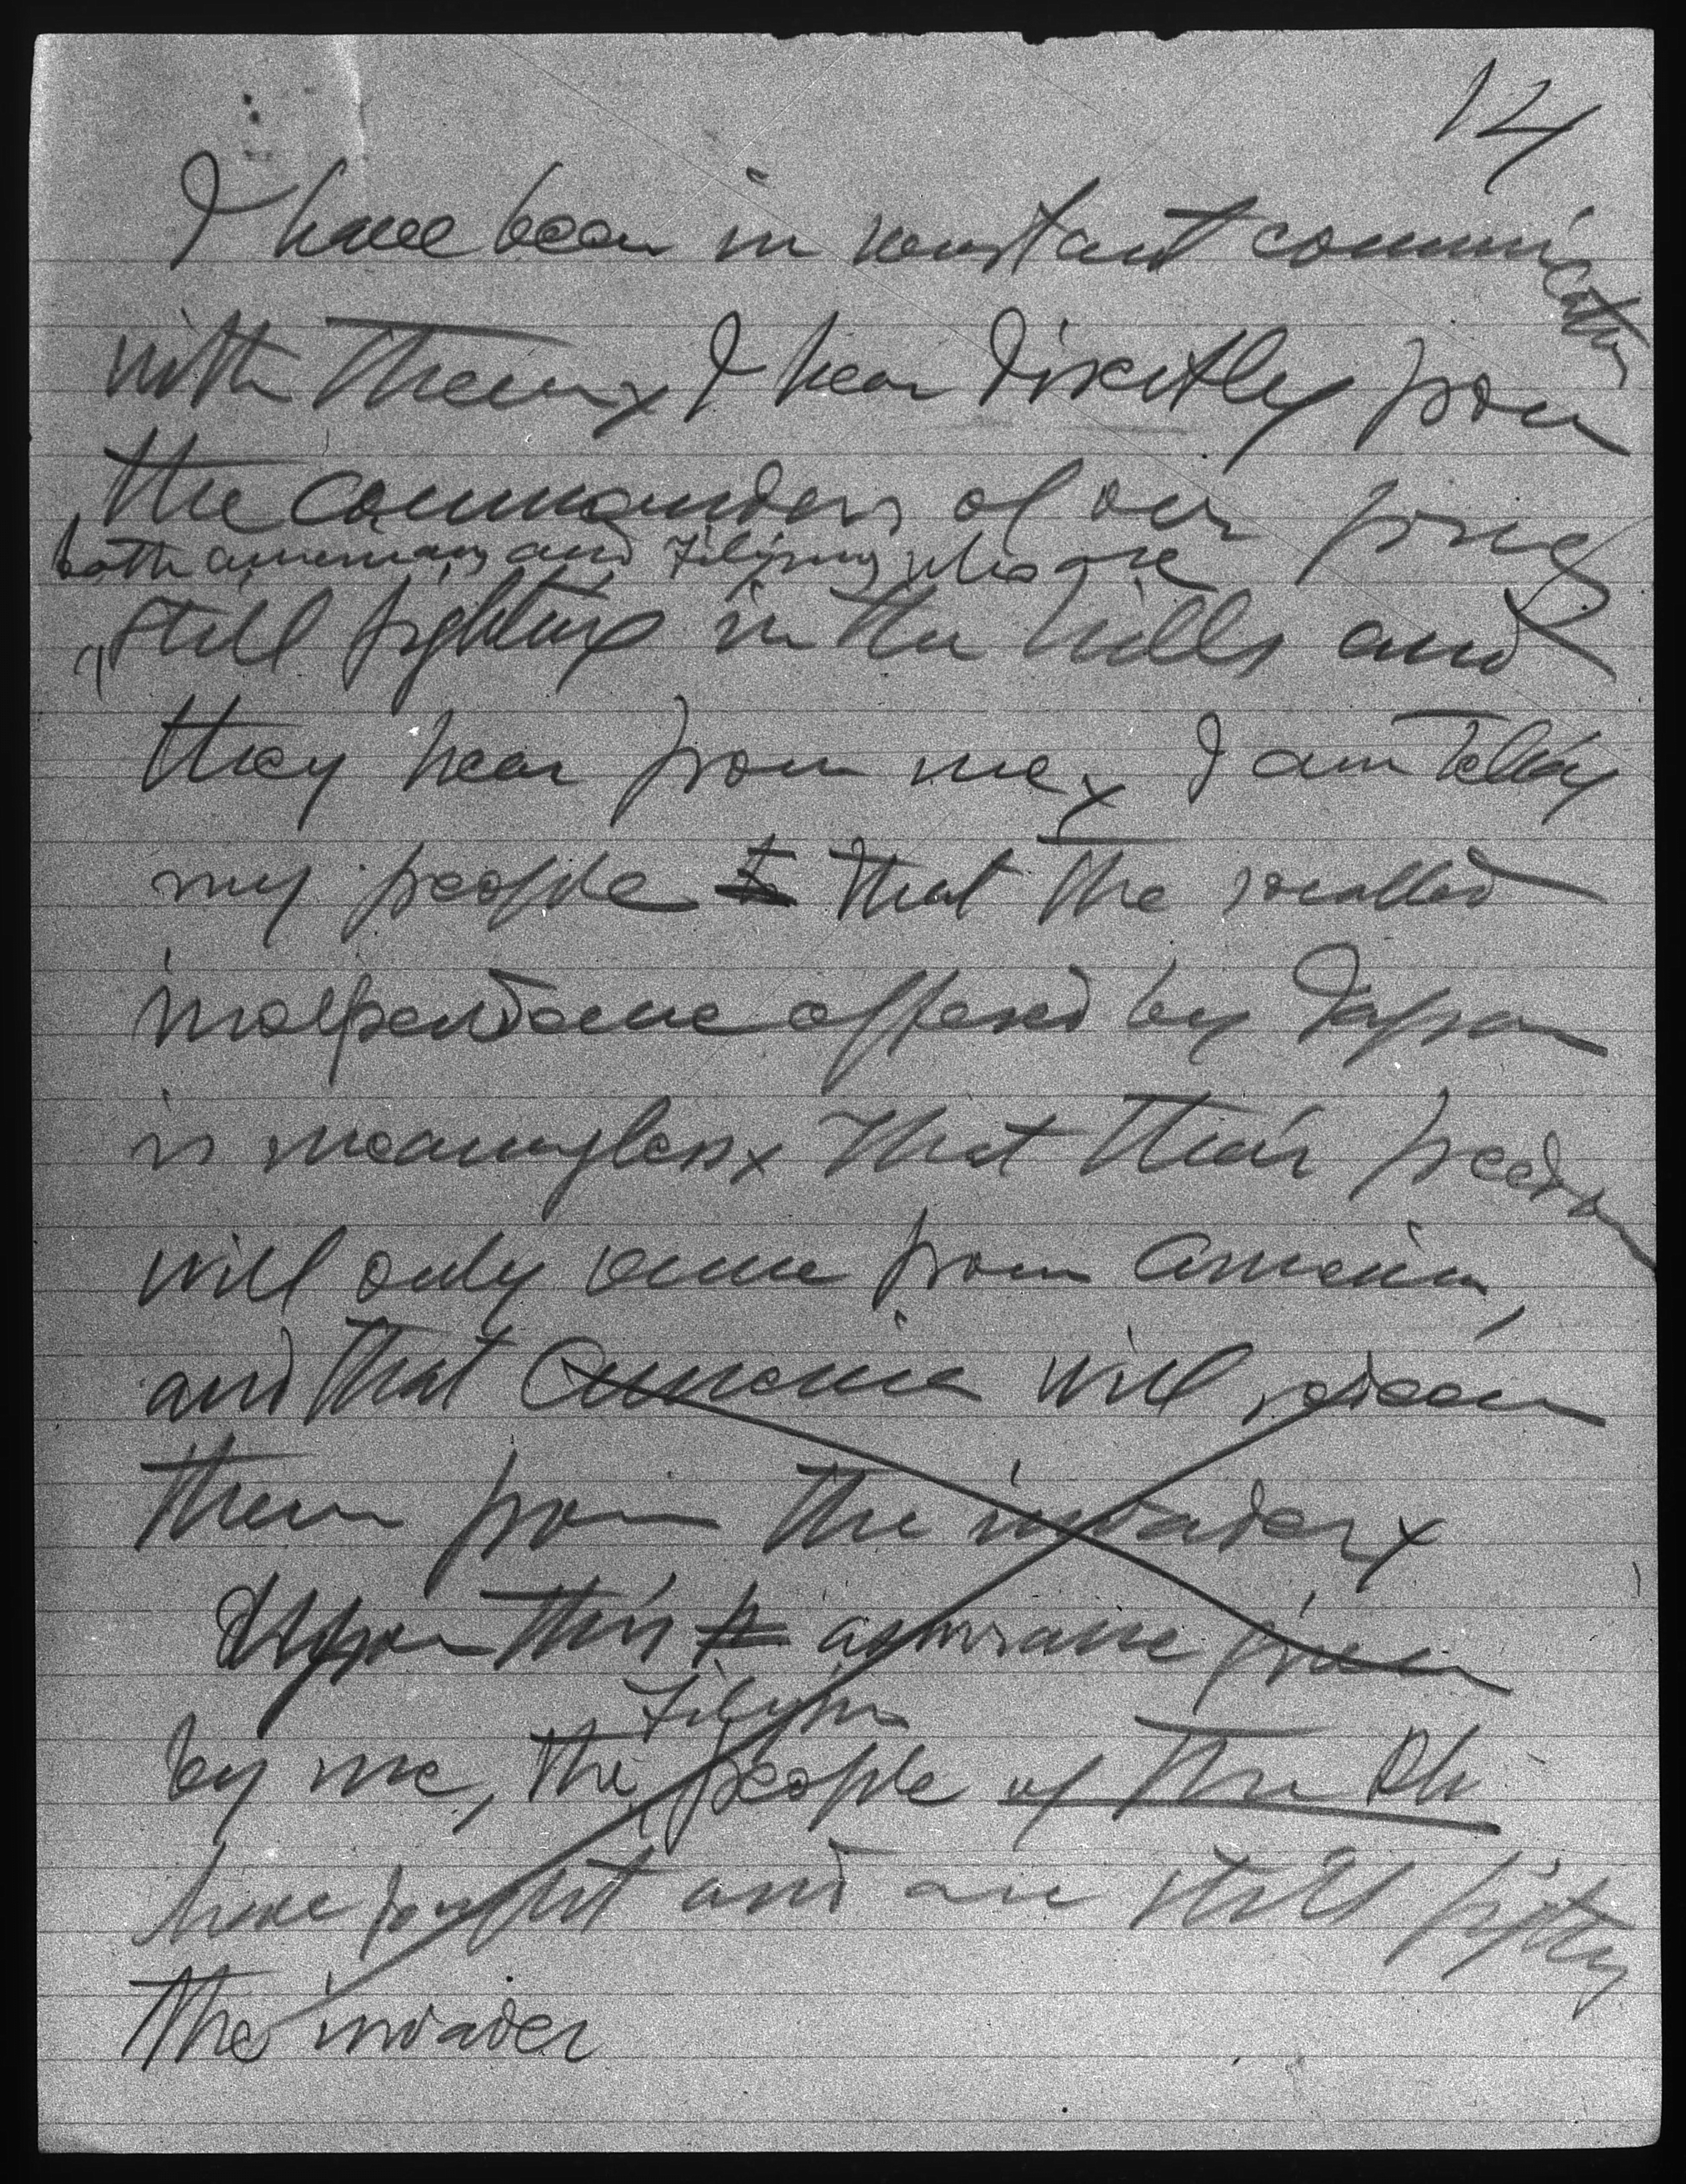 14
I have been in constant communication
with them x I hear directly from
the commanders of our forces
both americans and Filipinos who are
still fighting in the hills and
they hear from me x I am telling
my people to that the socalled
independence offered by Japan
is meaningless x That their freedom
will only come from America,
and that America will redeem
them from the invader x
Upon this assurance given
by me, the people of the Ph
Filipino
have fought and are still fighting
the invader